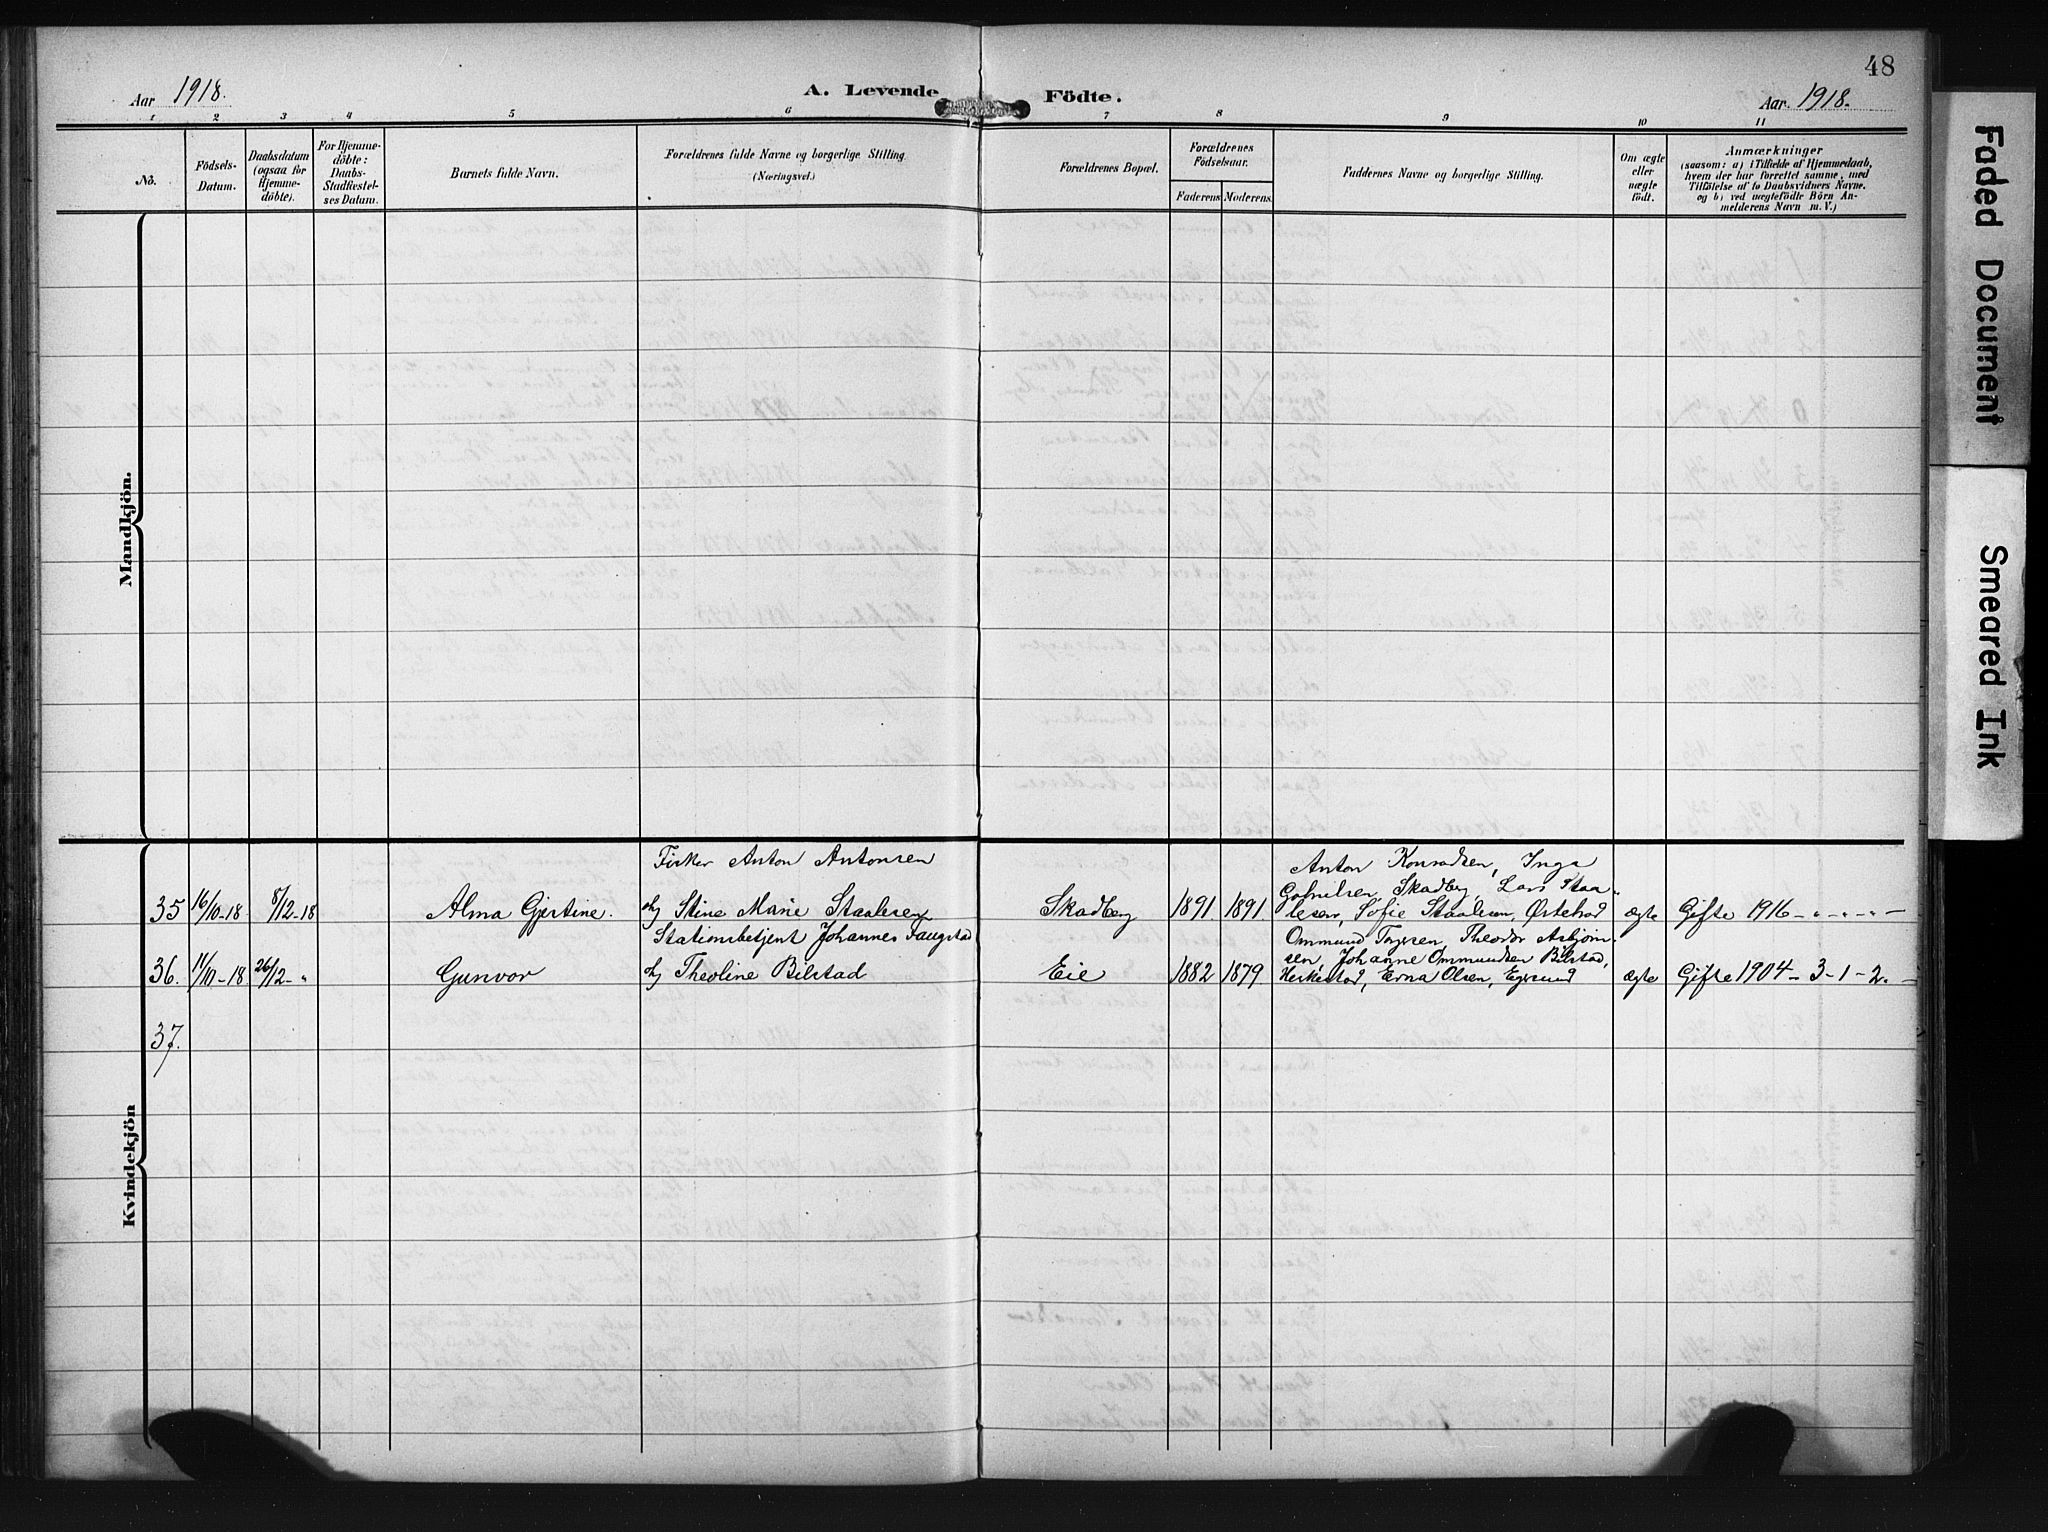 48
Aar 1918.
A. Levende Födte.
Aar 1918.
1 2 3 4 5 6 7 8 9 10 11
No.
Födsels-Datum.
Daabsdatum (ogsaa for Hjemme-döbte).
For Hjemme-döbte: Daabs-Stadfæstel-ses Datum.
Barnets fulde Navn.
Forældrenes fulde Navne og borgerlige Stilling.
(Næringsvei.)
Forældrenes Bopæl.
Forældrenes Födselsaar.
Faderens Moderens.
Faddernes Navne og borgerlige Stilling.
Om ægte eller uægte födt.
Anmærkninger
(saasom: a) i Tilfælde af Hjemmedaab, hvem der har forrettet samme, med Tilföielse af to Daabsvidners Navne. og b) ved uægtefödte Börn An-melderens Navn m. V.)
Mandkjön.
Kvindekjön
35 16/10-18 8/12-18 Alma Gjertine.
Fisker Anton Antonsen
og Stine Marie Staalesen
Skadberg 1891 1891
Anton Konradsen, Inga
Gabrielsen Skadberg, Lars Staa-
lesen, Sofie Staalesen, Østebrød
ægte Gifte 1916 - „ - „ - „ -
36. 11/10-18 26/12-„ Gunvor
Stationsbetjent Johannes Haugstad
og Theoline Bilstad
Eie 1882 1879
Ommund Torgersen, Theodor Asbjørn-
sen, Johanne Ommundsen Bilstad,
Herkestad, Erna Olsen, Egersund
ægte Gifte 1904 - 3 - 1 - 2. -
37.
Faded Document
Smeared Ink